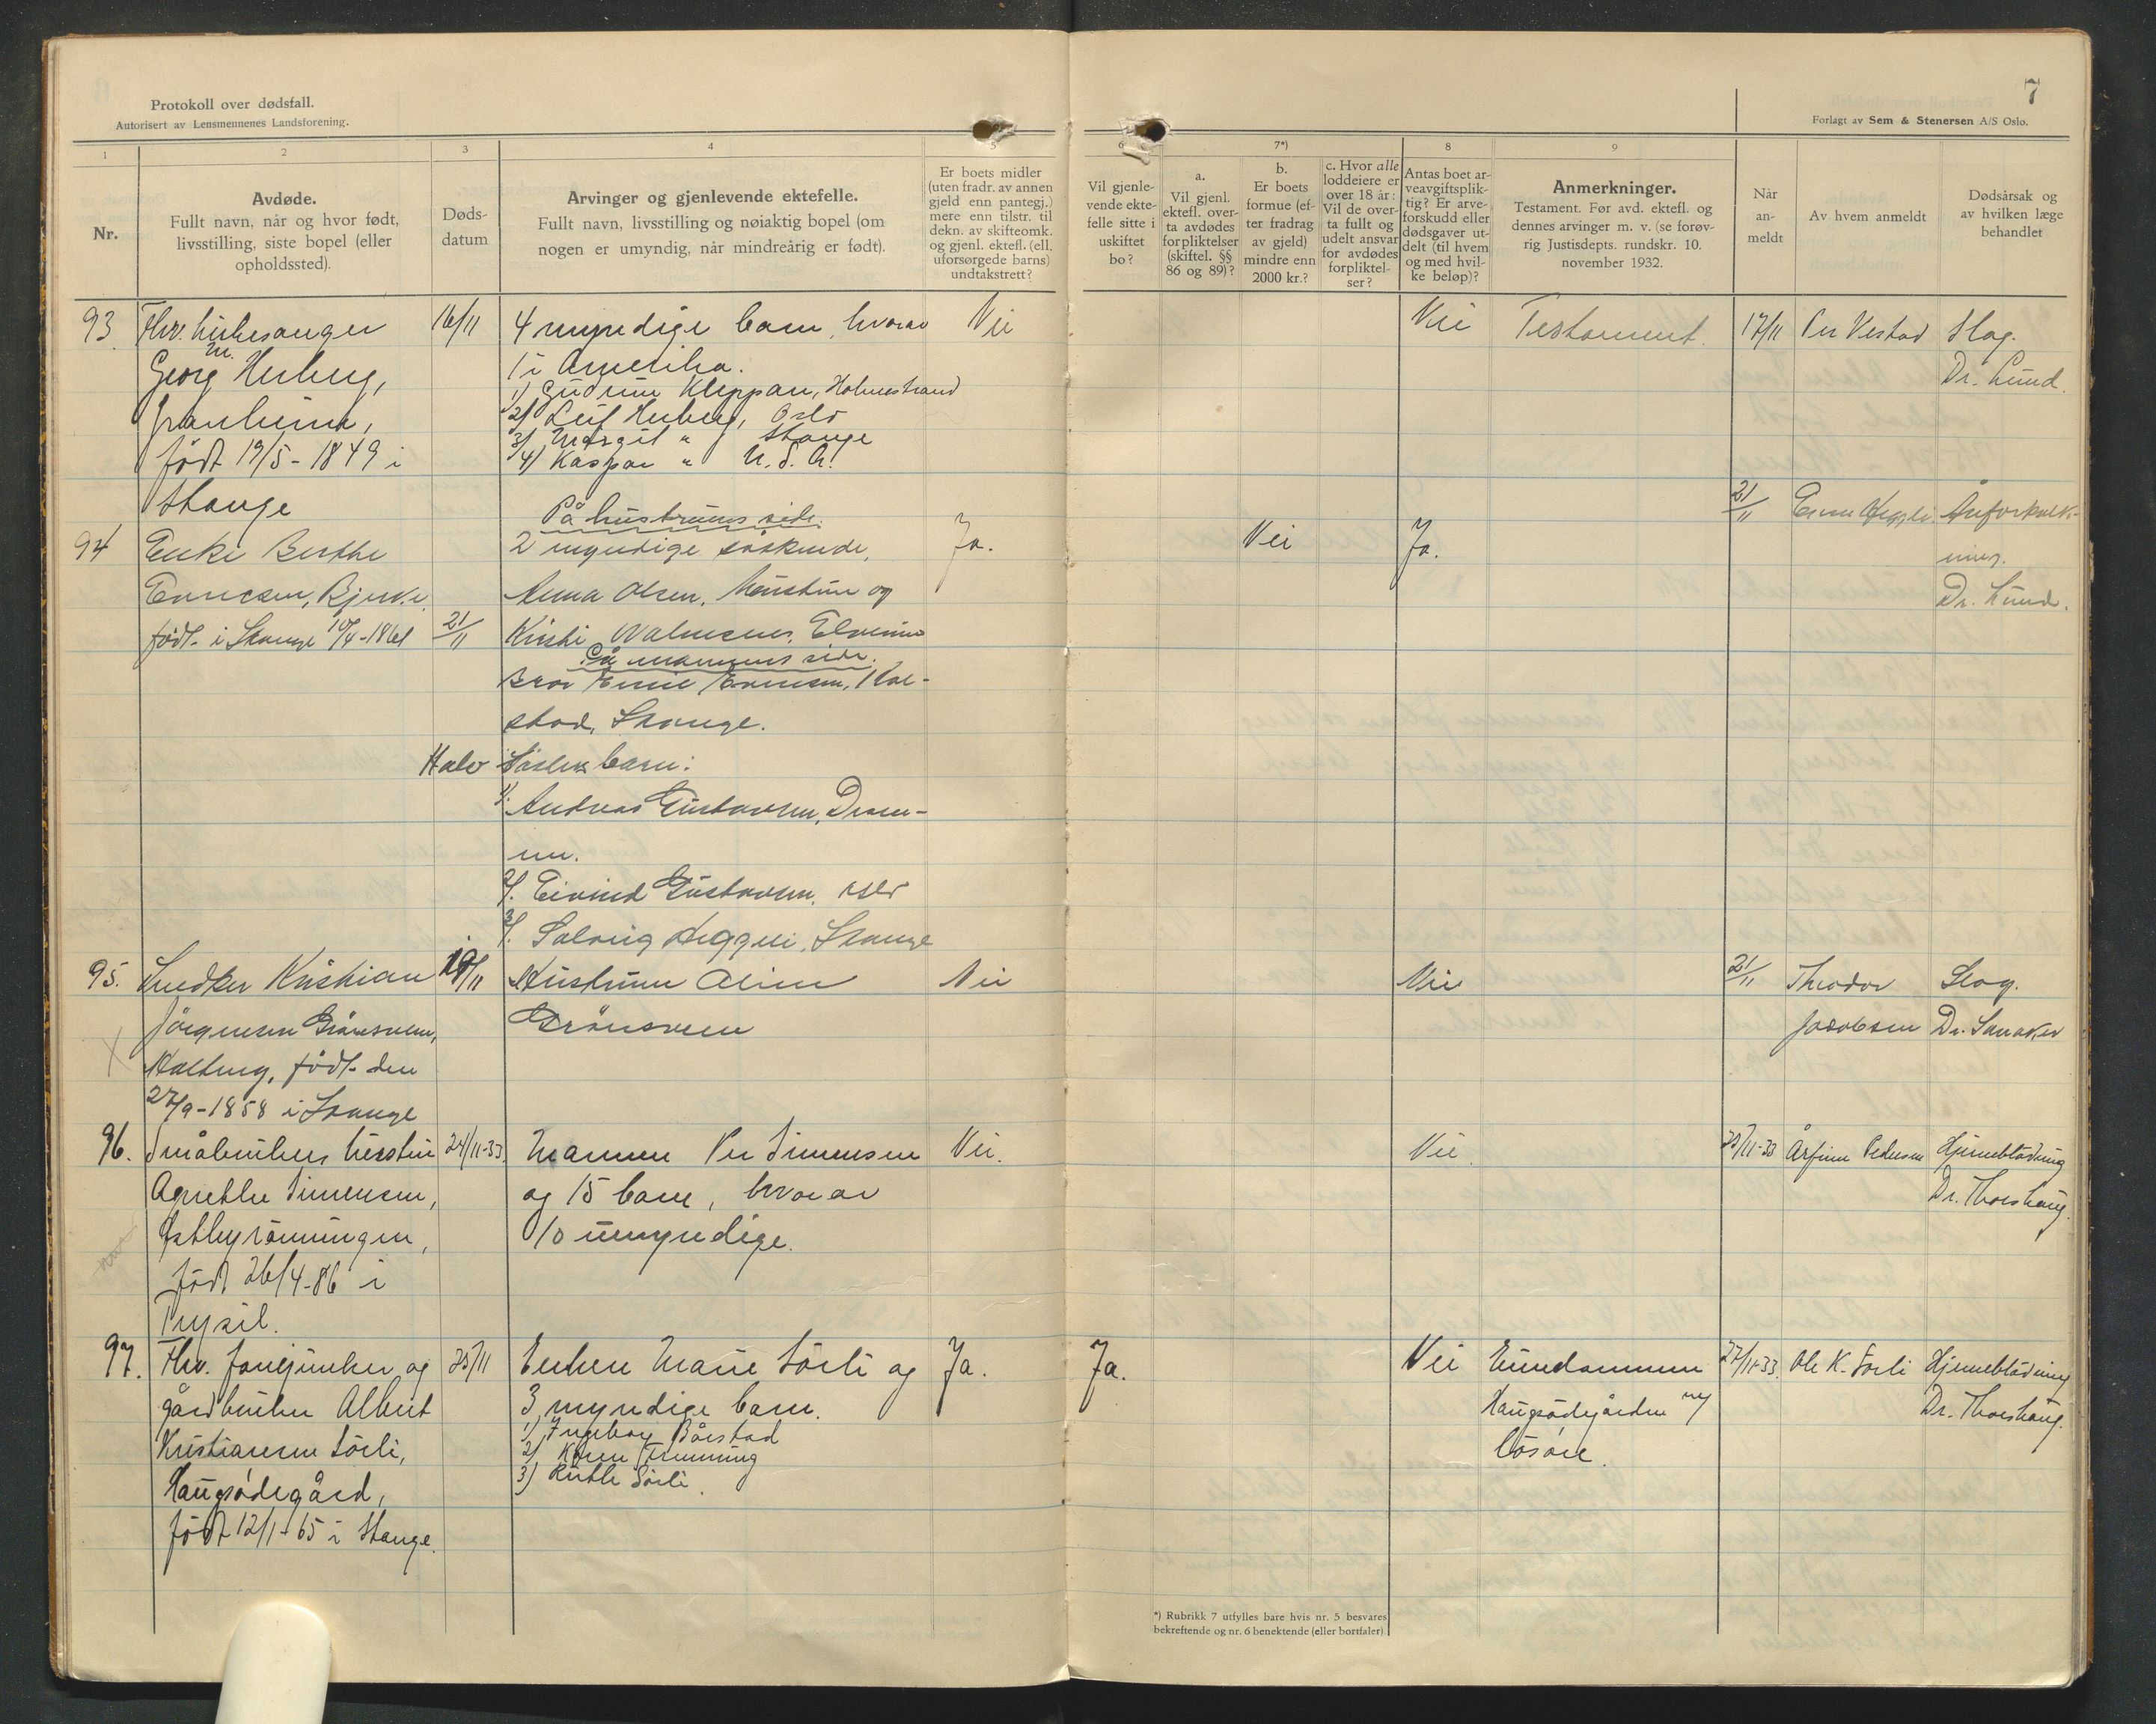 Protokoll over dødsfall.
Autorisert av Lensmennenes Landsforening.
7
Forlagt av Sem & Stenersen A/S Oslo.
1
2
3
4
5
6
7*)
8
9
Nr.
Avdøde.
Fullt navn, når og hvor født,
livsstilling, siste bopel (eller
opholdssted).
Døds-
datum
Arvinger og gjenlevende ektefelle.
Fullt navn, livsstilling og nøiaktig bopel (om
nogen er umyndig, når mindreårig er født).
Er boets midler
(uten fradr. av annen
gjeld enn pantegj.)
mere enn tilstr. til
dekn. av skifteomk.
og gjenl. ektefl. (ell.
uforsørgede barns)
undtakstrett?
Vil gjenle-
vende ekte-
felle sitte i
uskiftet
bo?
a.
Vil gjenl.
ektefl. over-
ta avdødes
forpliktelser
(skiftel. §§
86 og 89)?
b.
Er boets
formue (ef-
ter fradrag
av gjeld)
mindre enn
2000 kr.?
c. Hvor alle
loddeiere er
over 18 år:
Vil de over-
ta fullt og
udelt ansvar
for avdødes
forpliktel-
ser?
Antas boet ar-
veavgiftsplik-
tig? Er arve-
forskudd eller
dødsgaver ut-
delt (til hvem
og med hvil-
ke beløp)?
Anmerkninger.
Testament. Før avd. ektefl. og
dennes arvinger m. v. (se forøv-
rig Justisdepts. rundskr. 10.
november 1932.
Når
an-
meldt
Av hvem anmeldt
Dødsårsak og
av hvilken læge
behandlet
93.
Fhv. kirkesanger
Georg M. Herberg,
Granheim,
født 19/5-1849 i
Stange
16/11
4 myndige barn, hvorav
1 i Amerika.
1) Gudrun Kleppan, Holmestrand
2) Leif Herberg, Oslo
3) Margit " Stange
4) Kaspar " U.S.A.
Nei
Nei
Testament.
17/11
Per Vestad
Slag.
Dr. Lund.
94
Enke Berthe
Evensen, Bjerke
født i Stange 10/4-1861
21/11
På hustruens side.
2 myndige søskende,
Anna Olsen, hustru og
Kristi
På mannens side.
Bror Emil Evensen,
stad, Stange.
Halv Søsters barn:
1/. Andreas Gustavsen, Dram-
men.
2/. Eivind Gustavsen, Oslo
3/. Solveig Heggeli, Stange
Ja.
Nei
Ja.
21/11
Åreforkalk-
ning.
Dr. Lund.
95.
Snedker Kristian
Jörgensen Grönsveen,
født den
27/9-1858 i Stange
19/11
Hustruen Oline
Grönsveen
Nei
Nei
21/11
Theodor
Jacobsen
Slag.
Dr. Sanaker
96.
Småbrukers hustru
Agnethe Simensen,
Østbyrönningen,
født 26/4-86 i
Trysil.
24/11-33.
Mannen Per Simensen
og 15 barn, hvorav
10 umyndige.
Nei.
Nei.
25/11-33
Arfinn Pedersen
Hjerneblødning
Dr. Thorshaug.
97.
Fhv. fanejunker og
gårdbruker Albert
Kristiansen Sörli,
Haugsødegård,
født 12/1-65 i Stange.
25/11
Enken Marie Sörli og
3 myndige barn.
1) Ingeborg Bårstad
2) Karen Fremming
3) Ruth Sörli.
Ja.
Ja.
Nei
Eiendommen
Haugsødegården og
løsøre.
27/11-33.
Ole K. Sörli
Hjerneblødning
Dr. Thorshaug.
*) Rubrikk 7 utfylles bare hvis nr. 5 besvares
bekreftende og nr. 6 benektende (eller bortfaler)